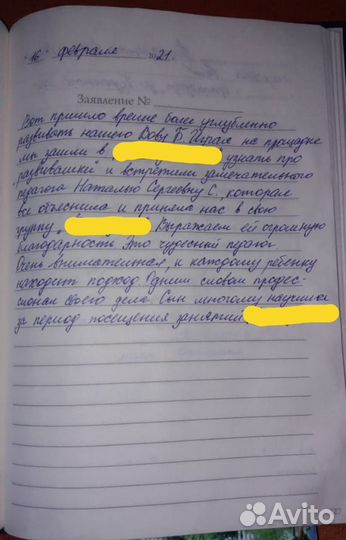 " 16 " февраля 2021 г.
Заявление №
Вот пришло время более углубленно
развивать нашего Вову Б. Играя на площадке
мы зашли в узнать про
"развивашки" и встретили замечательного
педагога Наталью Сергеевну С., которая
все объяснила и приняла нас в свою
группу Выражаем ей огромную
благодарность. Это чудесный педагог.
Очень внимательная, к каждому ребенку
находит подход. Одним словом профес-
сионал своего дела. Сын многому научился
за период посещения занятий
Avito